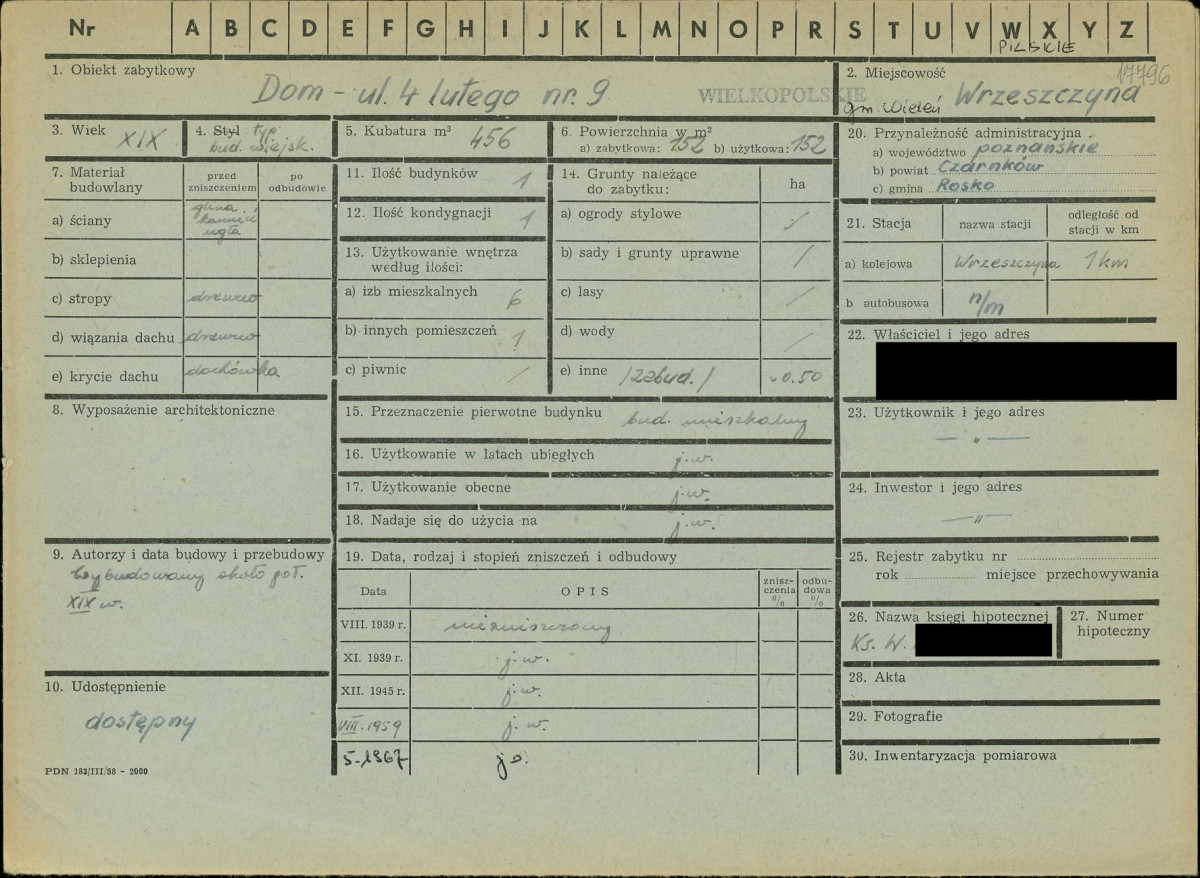 Nr A B C D E F G H I J K L M N O P R S T U V W X Y Z
PILSKIE
17796
1. Obiekt zabytkowy
Dom - ul. 4 lutego nr. 9
WIELKOPOLSKIE
2. Miejscowość
gm. Wieleń Wrzeszczyna
3. Wiek
XIX
4. Styl typ.
bud. wiejsk.
5. Kubatura m³
456
6. Powierzchnia w m²
a) zabytkowa: 152 b) użytkowa: 152
7. Materiał
budowlany
przed
zniszczeniem
po
odbudowie
a) ściany
glina
kamień
cegła
b) sklepienia
c) stropy drewno
d) wiązania dachu drewno
e) krycie dachu dachówka
8. Wyposażenie architektoniczne
9. Autorzy i data budowy i przebudowy
Wybudowany około poł.
XIX w.
10. Udostępnienie
dostępny
PDN 183/III/58 - 2000
11. Ilość budynków 1
12. Ilość kondygnacji 1
13. Użytkowanie wnętrza
według ilości:
a) izb mieszkalnych 6
b) innych pomieszczeń 1
c) piwnic /
14. Grunty należące
do zabytku:
ha
a) ogrody stylowe /
b) sady i grunty uprawne /
c) lasy /
d) wody /
e) inne /zabud./ 0.50
15. Przeznaczenie pierwotne budynku bud. mieszkalny
16. Użytkowanie w latach ubiegłych j.w.
17. Użytkowanie obecne j.w.
18. Nadaje się do użycia na j.w.
19. Data, rodzaj i stopień zniszczeń i odbudowy
Data
OPIS
znisz-
czenia
%
odbu-
dowa
%
VIII. 1939 r. niezniszczony
XI. 1939 r. j.w.
XII. 1945 r. j.w.
VIII. 1959 j.w.
5. 1967
20. Przynależność administracyjna
a) województwo poznańskie
b) powiat Czarnków
c) gmina Rosko
21. Stacja
nazwa stacji
odległość od
stacji w km
a) kolejowa Wrzeszczyna 1 km
b autobusowa n/m
22. Właściciel i jego adres
23. Użytkownik i jego adres
— „ —
24. Inwestor i jego adres
— „ —
25. Rejestr zabytku nr
rok miejsce przechowywania
26. Nazwa księgi hipotecznej
Ks. W.
27. Numer
hipoteczny
28. Akta
29. Fotografie
30. Inwentaryzacja pomiarowa